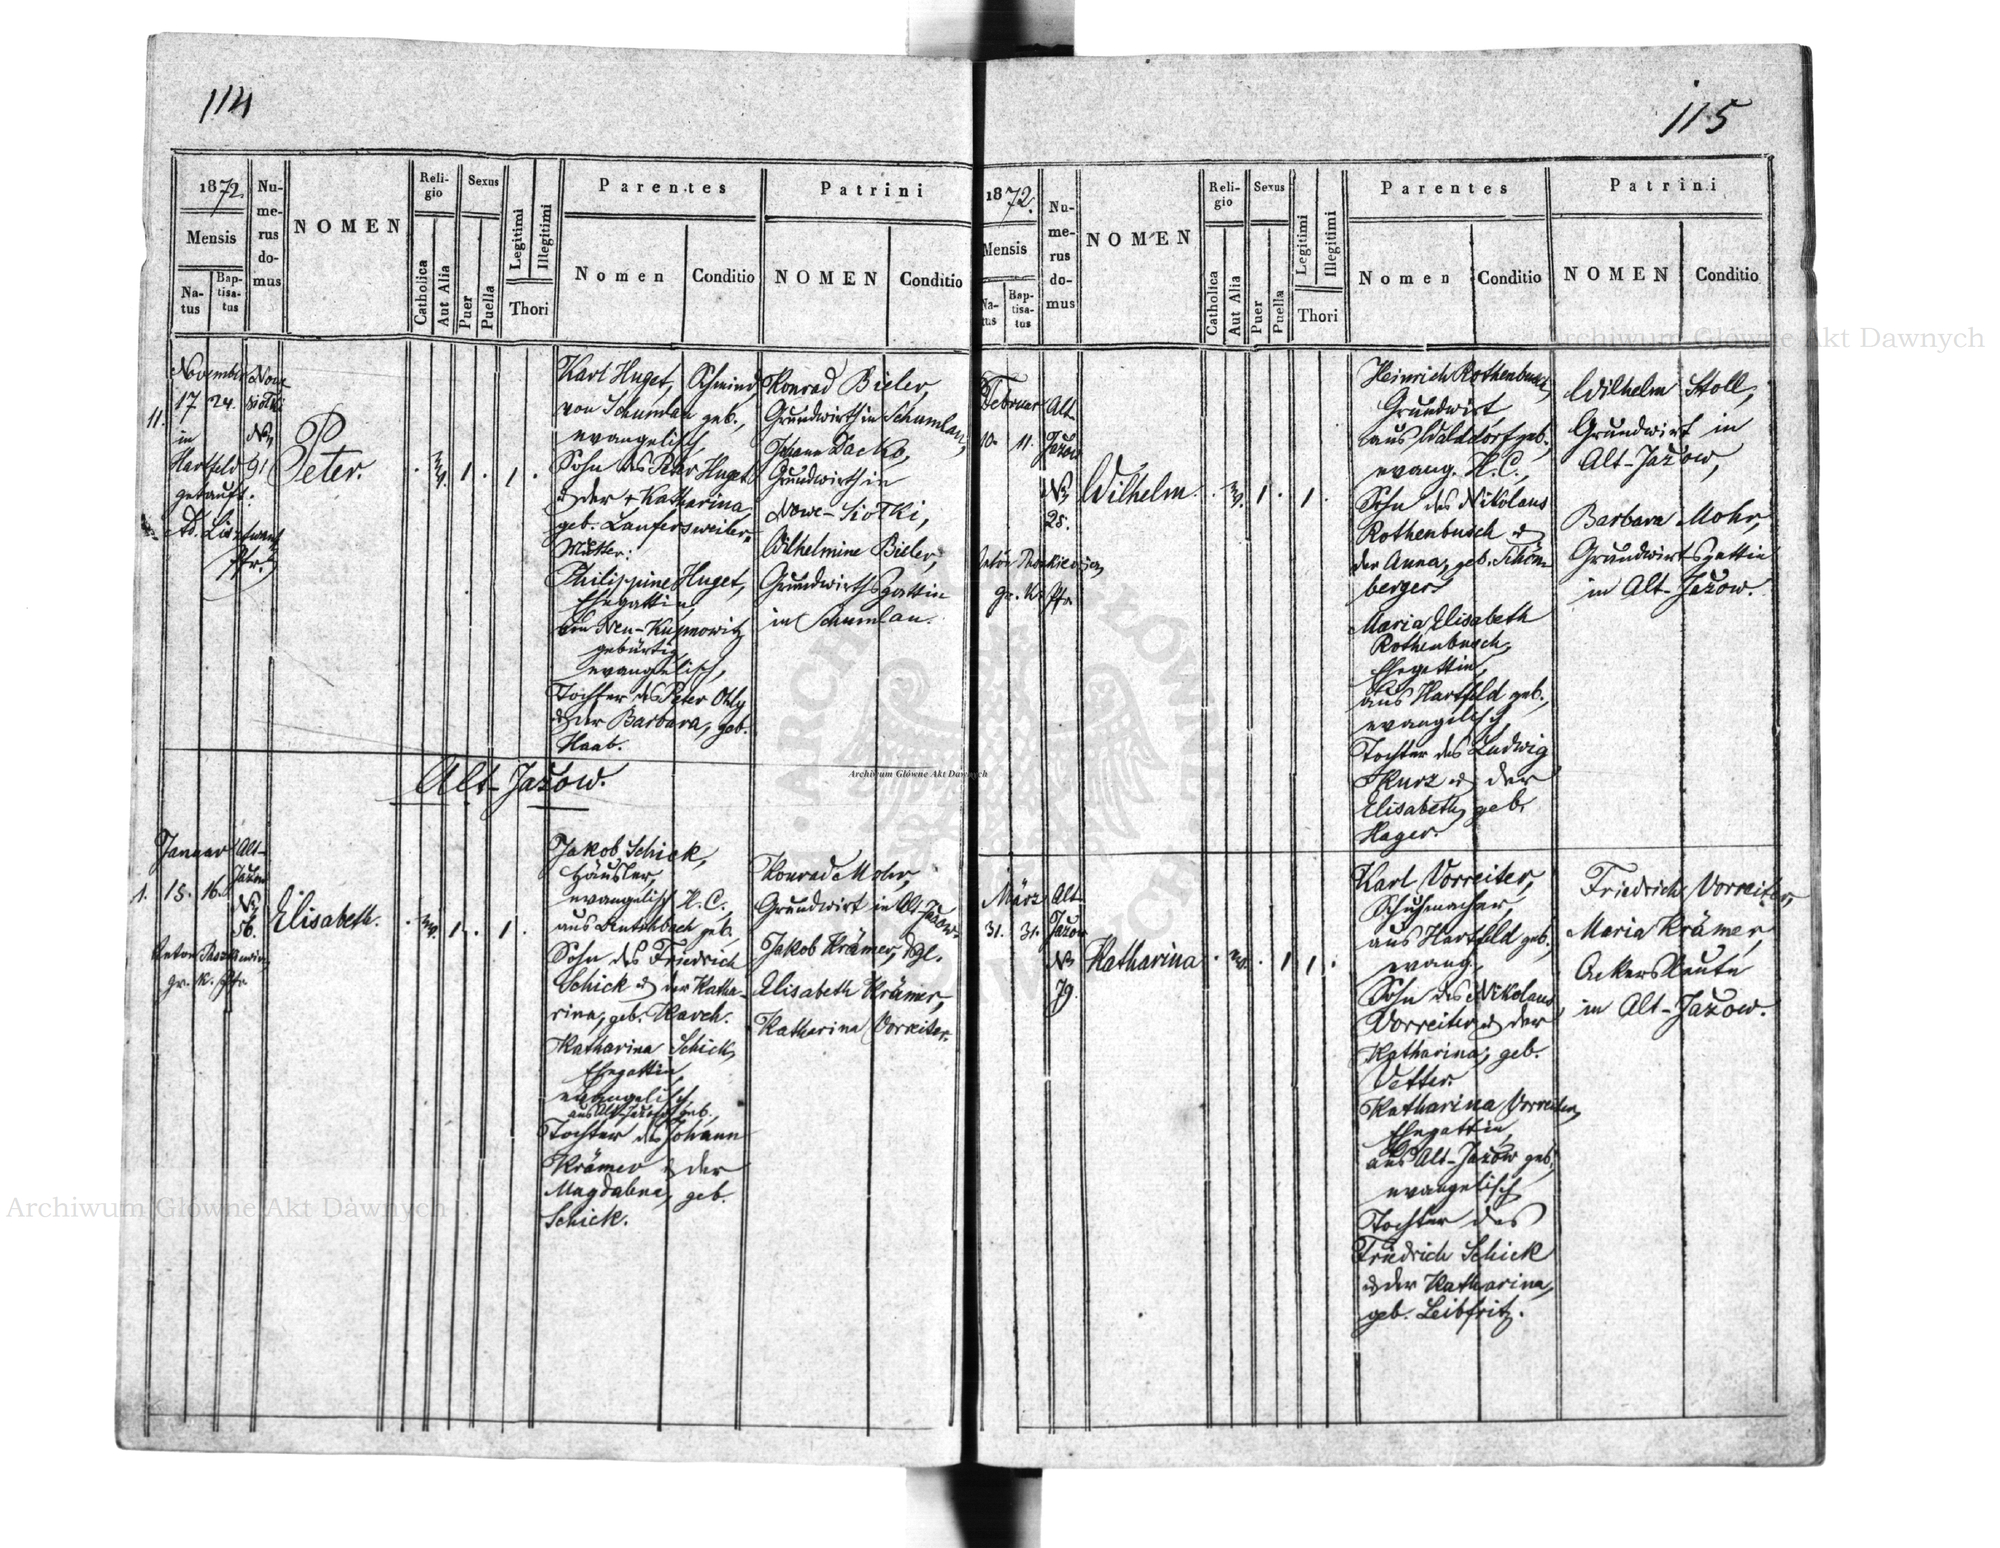 114
1872.
Mensis
Na-
tus
Bap-
tisa-
tus
Nu-
me-
rus
do-
mus
NOMEN
Reli-
gio
Catholica
Aut Alia
Sexus
Puer
Puella
Legitimi
Illegitimi
Thori
Parentes
Nomen
Conditio
Patrini
NOMEN
Conditio
11.
November
17
24.
in
Hartfeld
getauft.
Pfr.
Nowe
Siolki
No
91
Peter.
ev.
1.
1.
Karl Huget, Schmied,
von Schumlau geb.,
evangelisch,
Sohn des Peter Huget
u. der + Katharina
geb. Laufersweiler.
Mutter:
Philippine Huget,
Ehegattin,
von Neu-Kupnowitz
gebürtig
evangelisch,
Tochter des Peter Ohly
u. der Barbara, geb.
Haab.
Konrad Bieler,
Grundwirth in Schumlau,
Johann
Grundwirth in
Nowe-Siolki,
Wilhelmine Bieler,
Grundwirthsgattin
in Schumlau.
Alt-Jazow.
1.
Januar
15.
16.
Alt-
Jazow
No
56.
Anton
gr. k. Pfr.
Elisabeth.
ev.
1.
1.
Jakob Schick,
Häusler,
evangelisch H. C.,
aus geb.,
Sohn des Friedrich
Schick u. der Katha-
rina, geb. Karch.
Katharina Schick,
Ehegattin,
evangelisch,
aus Alt-Jazow geb.,
Tochter des Johann
Krämer u. der
Magdalena, geb.
Schick.
Konrad Mohr,
Grundwirt in Alt-Jazow.
Jakob Krämer, dgl.
Elisabeth Krämer,
Katharina Vorreiter.
115
1872.
Mensis
Na-
tus
Bap-
tisa-
tus
Nu-
me-
rus
do-
mus
NOMEN
Reli-
gio
Catholica
Aut Alia
Sexus
Puer
Puella
Legitimi
Illegitimi
Thori
Parentes
Nomen
Conditio
Patrini
NOMEN
Conditio
Februar
10.
11.
Alt-
Jazow
No
25.
Anton
gr. k. Pfr.
Wilhelm.
ev.
1.
1.
Heinrich Rothenbusch,
Grundwirt,
aus Walddorf geb.,
evang. H. C.,
Sohn des Nikolaus
Rothenbusch u.
der Anna, geb. Schön-
berger.
Maria Elisabeth
Rothenbusch,
Ehegattin,
aus Hartfeld geb.,
evangelisch,
Tochter des Ludwig
Kurz u. der
Elisabeth, geb.
Hager.
Wilhelm Stoll,
Grundwirt in
Alt-Jazow,
Barbara Mohr,
Grundwirtsgattin
in Alt-Jazow.
März
31.
31.
Alt-
Jazow
No
79.
Katharina
ev.
1
1.
Karl Vorreiter,
Schuhmacher,
aus Hartfeld geb.,
evang.,
Sohn des Nikolaus
Vorreiter u. der
Katharina, geb.
Vetter.
Katharina Vorreiter,
Ehegattin,
aus Alt-Jazow geb.,
evangelisch
Tochter des
Friedrich Schick
u. der Katharina,
geb. Leibfritz.
Friedrich Vorreiter,
Maria Krämer,
Ackersleute
in Alt-Jazow.
Archiwum Główne Akt Dawnych
Archiwum Główne Akt Dawnych
Archiwum Główne Akt Dawnych